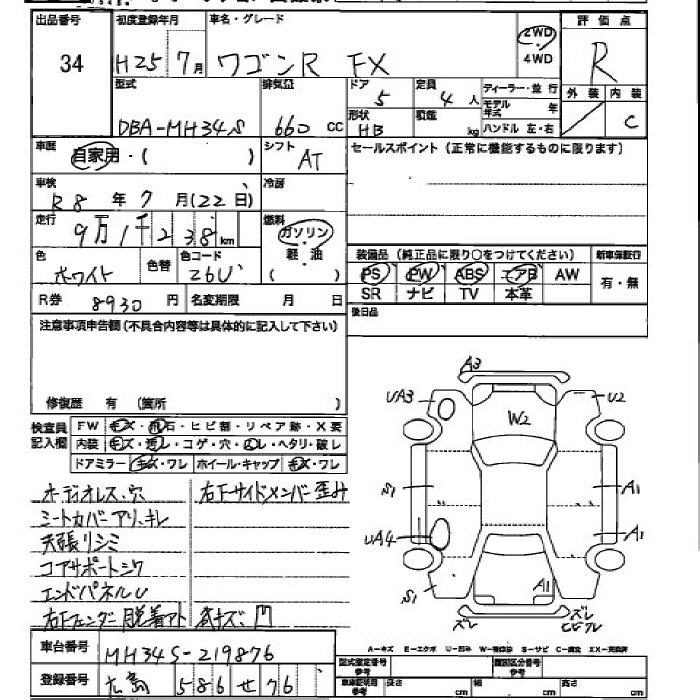 出品番号 初度登録年月 車名・グレード 評価点
34 H25年7月 ワゴンR FX 2WD・4WD R
外装 内装
C
型式 排気量 ドア 定員 ディーラー・並行
DBA-MH34S 660 cc 5 4人 モデル年式 年
形状 積載 ハンドル 左・右
HB kg
車歴 シフト セールスポイント(正常に機能するものに限ります)
自家用・( ) AT
車検 冷房
R8年7月(22日)
走行 燃料
9万1千238km ガソリン
軽・油
( )
色 色替 色コード
ホワイト 26U
装備品(純正品に限り○をつけてください) 新車保証行
PS PW ABS エアB AW 有・無
SR ナビ TV 本革
R券 8930円 名変期限 月 日
後日品
注意事項申告欄(不具合内容等は具体的に記入して下さい)
修復歴 有 (箇所 )
検査員記入欄
FW キズ・飛石・ヒビ割・リペア跡・X要
内装 キズ・汚レ・コゲ・穴・スレ・ヘタリ・破レ
ドアミラー キズ・ワレ ホイール・キャップ キズ・ワレ
オーディオレス、穴 右Fサイドメンバー歪み
シートカバーアリ、キレ
天張リシミ
コアサポートシワ
エンドパネルU
右Fフェンダー脱着アト
A3
UA3 U2
W2
S1 A1
UA4 A1
S1 A1
ズレ ズレ
A-キズ E-エクボ U-凹み W-補修跡 S-サビ C-腐食 XX-交換済
車台番号 MH34S-219876
登録番号 広島 586 せ 76
型式指定番号 類別区分番号
車庫証明用参考 長さ cm 幅 cm 高さ cm